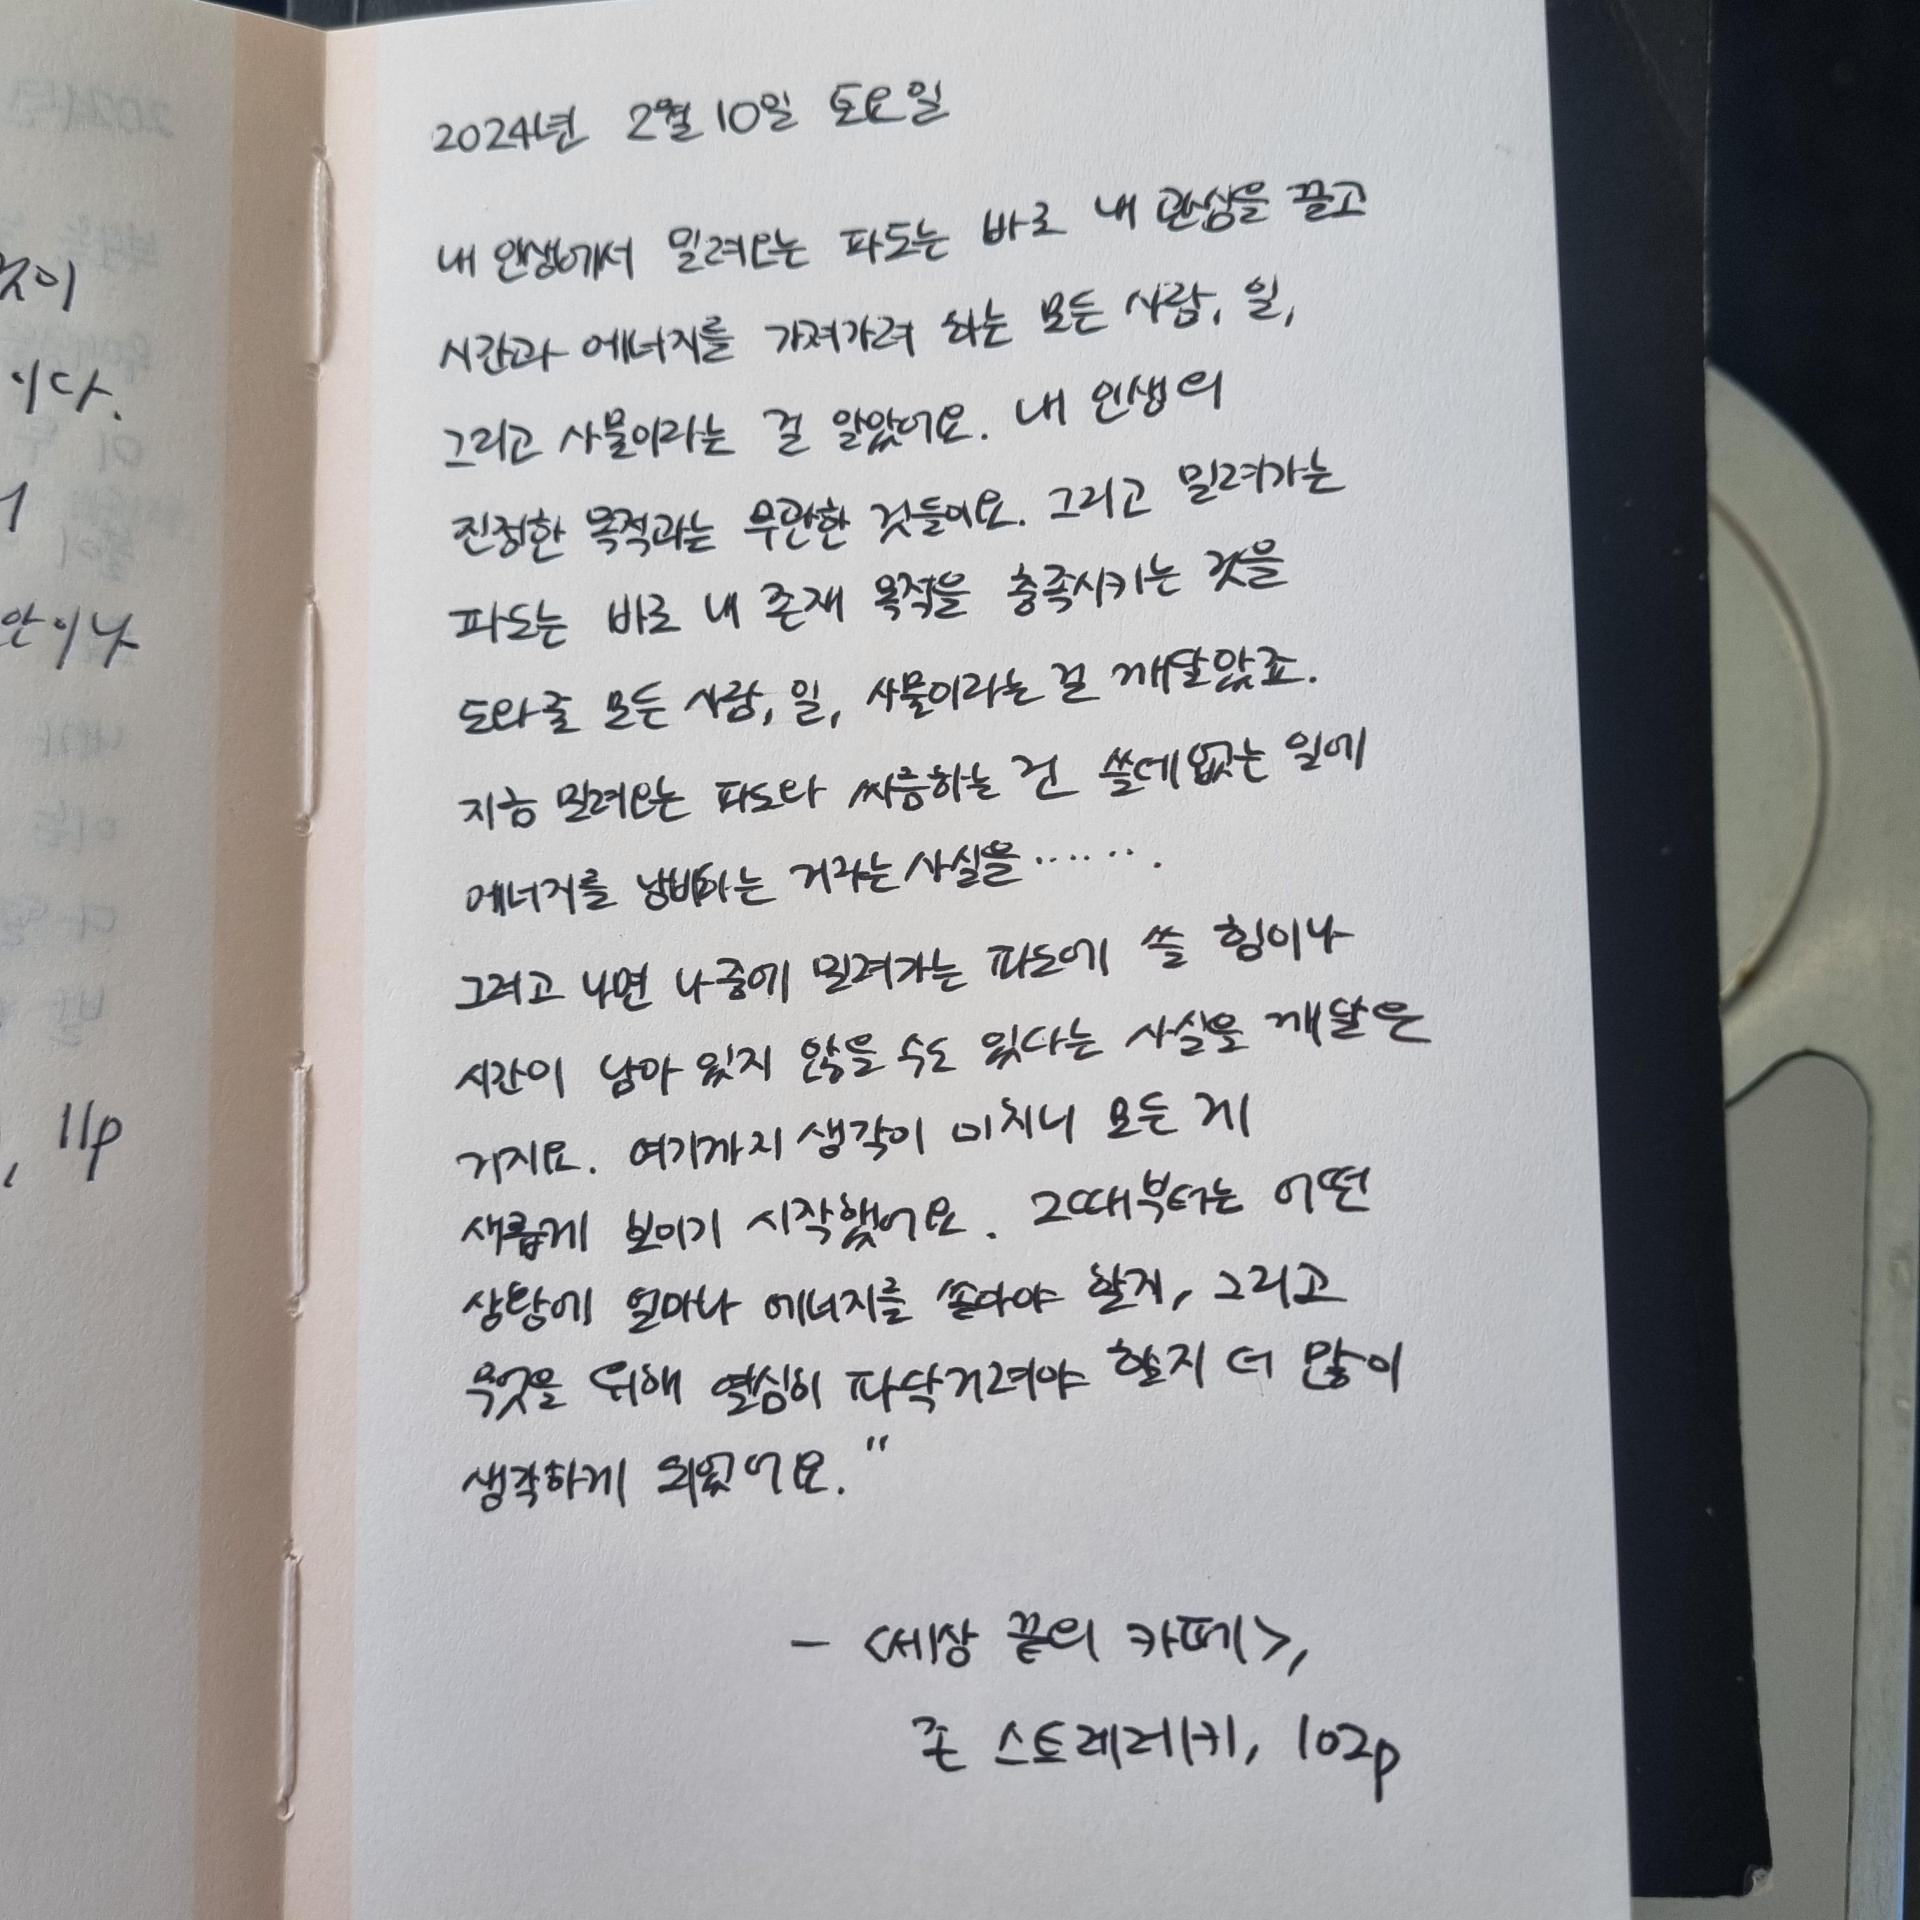 것이
이다.
안이나
, 11p
2024년 2월 10일 토요일
내 인생에서 밀려오는 파도는 바로 내 관심을 끌고
시간과 에너지를 가져가려 하는 모든 사람, 일,
그리고 사물이라는 걸 알았어요. 내 인생의
진정한 목적과는 무관한 것들이요. 그리고 밀려가는
파도는 바로 내 존재 목적을 충족시키는 것을
도와줄 모든 사람, 일, 사물이라는 걸 깨달았죠.
지금 밀려오는 파도와 씨름하는 건 쓸데없는 일에
에너지를 낭비하는 거라는 사실을‥‥‥.
그러고 나면 나중에 밀려가는 파도에 쓸 힘이나
시간이 남아 있지 않을 수도 있다는 사실을 깨달은
거지요. 여기까지 생각이 미치니 모든 게
새롭게 보이기 시작했어요. 그때부터는 어떤
상황에 얼마나 에너지를 쏟아야 할지, 그리고
무엇을 위해 열심히 파닥거려야 할지 더 많이
생각하게 되었어요."
- <세상 끝의 카페>,
존 스트레레키, 102p